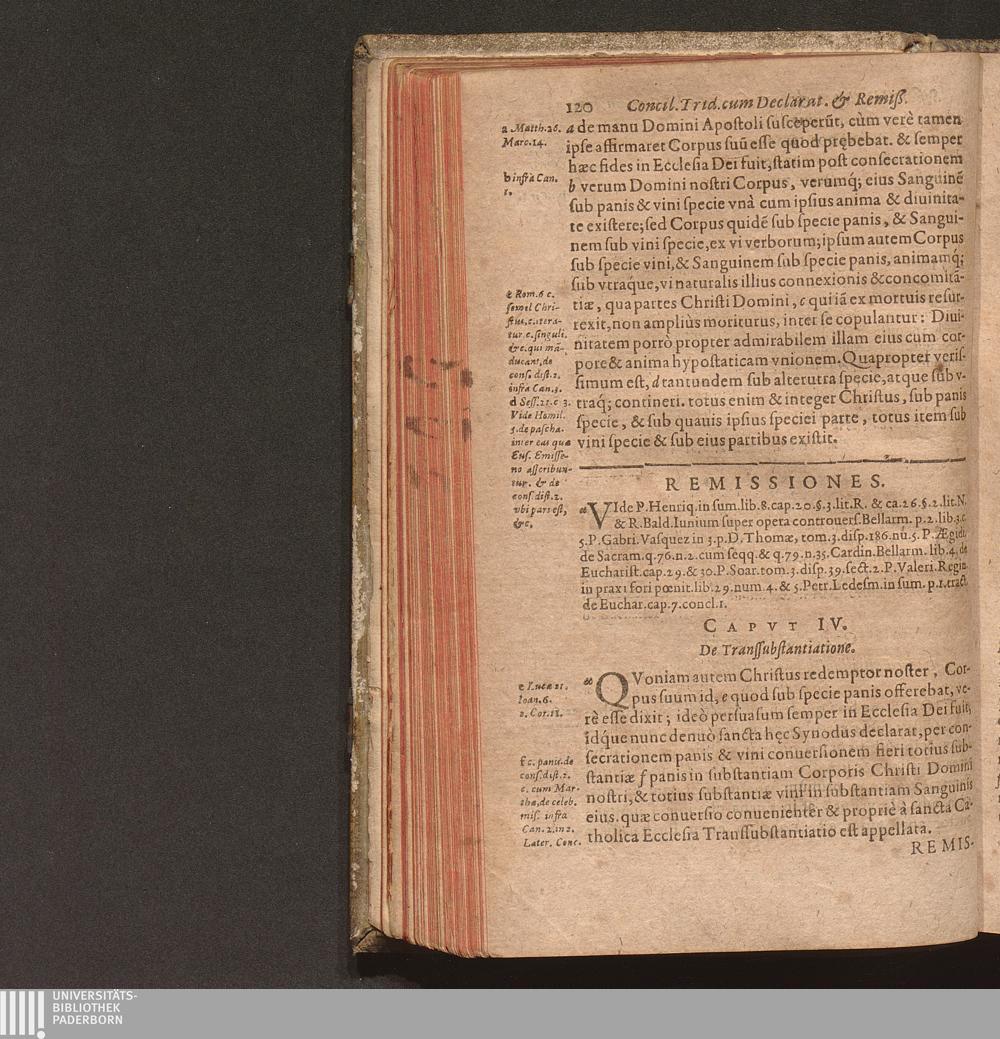 120 Concil. Trid. cum Declarat. & Remiß.
a Matth. 26.
Marc. 14.
b infrà Can.
1.
c Rom. 6 c.
semel Chri-
stus, c. itera-
tur. c. singuli.
&c. qui mā-
ducant, de
cons. dist. 2.
infrà Can. 3.
d Sess. 21. c 3.
Vide Homil.
5. de pascha.
inter eas quæ
Eus. Emisse-
no asscribun-
tur. & de
cons. dist. 2.
vbi pars est,
&c.
a de manu Domini Apostoli susceperūt, cùm verè tamen
ipse affirmaret Corpus suū esse quod prębebat. & semper
hæc fides in Ecclesia Dei fuit, statim post consecrationem
b verum Domini nostri Corpus, verumq́; eius Sanguinē
sub panis & vini specie vnà cum ipsius anima & diuinita-
te existere; sed Corpus quidē sub specie panis, & Sangui-
nem sub vini specie, ex vi verborum; ipsum autem Corpus
sub specie vini, & Sanguinem sub specie panis, animamq́;
sub vtraque, vi naturalis illius connexionis & concomitā-
tiæ, qua partes Christi Domini, c qui iā ex mortuis resur-
rexit, non ampliùs moriturus, inter se copulantur: Diui-
nitatem porrò propter admirabilem illam eius cum cor-
pore & anima hypostaticam vnionem. Quapropter veris-
simum est, d tantundem sub alterutra specie, atque sub v-
traq́; contineri. totus enim & integer Christus, sub panis
specie, & sub quauis ipsius speciei parte, totus item sub
vini specie & sub eius partibus existit.
REMISSIONES.
VIde P. Henriq. in sum. lib. 8. cap. 20. §. 3. lit. R. & ca. 26. §. 2. lit. N.
& R. Bald. Iunium super opera controuers. Bellarm. p. 2. lib. 3. c.
5. P. Gabri. Vasquez in 3. p. D. Thomæ, tom. 3. disp. 186. nū. 5. P. Ægidi.
de Sacram. q. 76. n. 2. cum seqq. & q. 79. n. 35. Cardin. Bellarm. lib. 4. de
Eucharist. cap. 29. & 30. P. Soar. tom. 3. disp. 39. sect. 2. P. Valeri. Regin.
in praxi fori pœnit. lib. 29. num. 4. & 5. Petr. Ledesm. in sum. p. 1. tract.
de Euchar. cap. 7. concl. 1.
CAPVT IV.
De Transsubstantiatione.
e Lucæ 21.
Ioan. 6.
2. Cor. 11.
f c. panis. de
cons. dist. 2.
c. cum Mar-
tha, de celeb.
miss. infra
Can. 2. in 2.
Later. Conc.
QVoniam autem Christus redemptor noster, Cor-
pus suum id, e quod sub specie panis offerebat, ve-
rè esse dixit; ideò persuasum semper in Ecclesia Dei fuit,
idque nunc denuò sancta hęc Synodus declarat, per con-
secrationem panis & vini conuersionem fieri totius sub-
stantiæ f panis in substantiam Corporis Christi Domini
nostri, & totius substantiæ vini in substantiam Sanguinis
eius. quæ conuersio conuenienter & propriè à sancta Ca-
tholica Ecclesia Transsubstantiatio est appellata.
REMIS-
UNIVERSITÄTS-
BIBLIOTHEK
PADERBORN